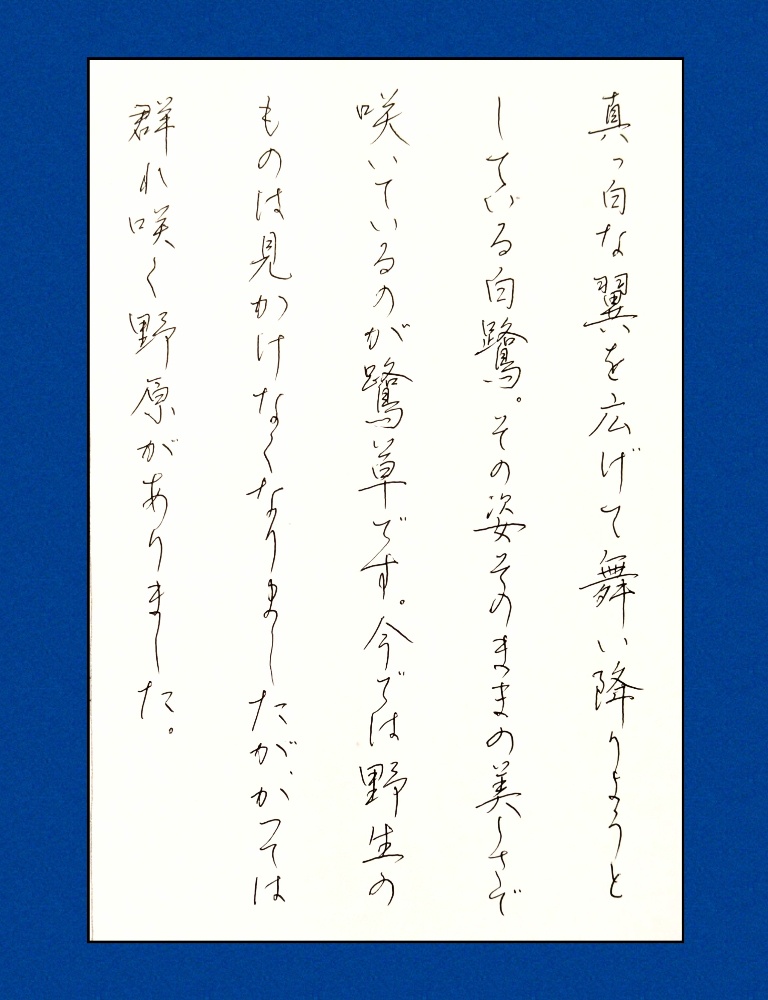 真っ白な翼を広げて舞い降りようと
している白鷺。その姿そのままの美しさで
咲いているのが鷺草です。今では野生の
ものは見かけなくなりましたが、かつては
群れ咲く野原がありました。